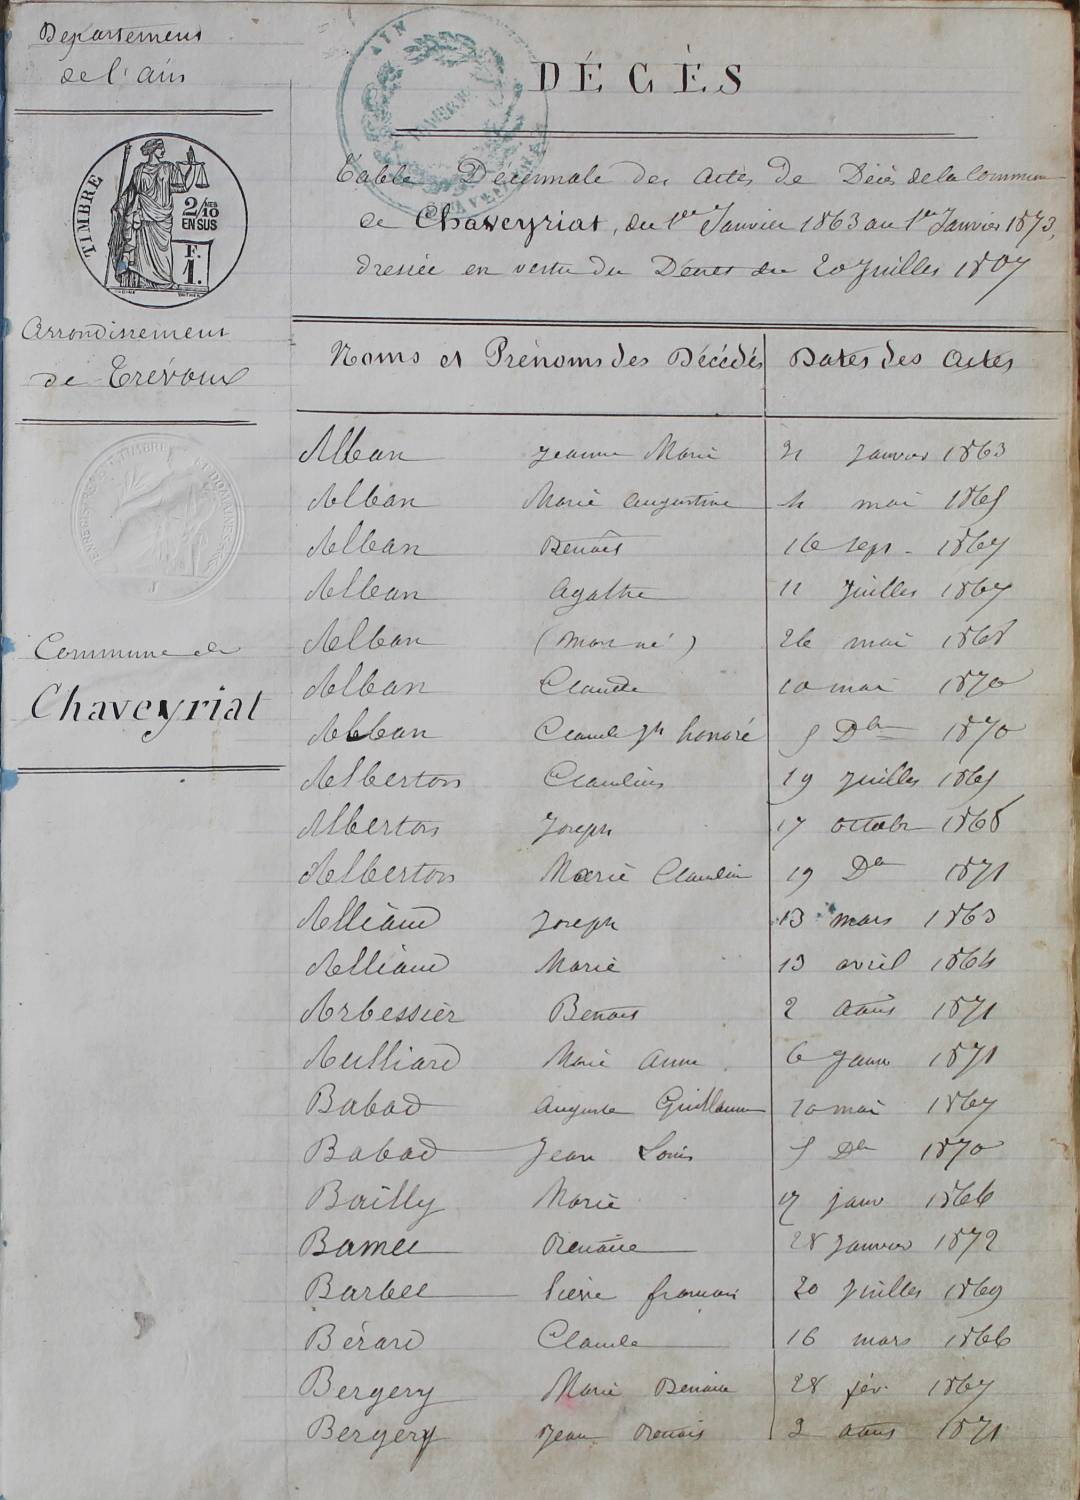 Département
de l'Ain
TIMBRE
2/10 MES
EN SUS
F.
1.
Arrondissement
de Trévoux
Commune de
Chaveyriat
AIN
DÉCÈS
Table Décennale des actes de Décès de la Commune
de Chaveyriat, du 1er Janvier 1863 au 1er Janvier 1873,
dressée en vertu du Décret du 20 Juillet 1807
Noms et Prénoms des Décédés Dates des Actes
Alban Jeanne Marie 21 Janvier 1863
Alban Marie Augustine 4 mai 1865
Alban Benoît 16 sept. 1867
Alban Agathe 11 Juillet 1867
Alban (mort né) 26 mai 1868
Alban Claude 10 mai 1870
Alban Claude Jh honoré 5 Dbre 1870
Alberton Claudius 19 Juillet 1865
Alberton Joseph 17 octobre 1868
Alberton Marie Claudin 19 Dbre 1871
Alliaud Joseph 13 mars 1863
Alliaud Marie 13 avril 1864
Arbessier Benoit 2 août 1871
Aulliard Marie Anne 6 Janv 1871
Babad Auguste Guillaume 10 mai 1867
Babad Jean Louis 5 Dbre 1870
Bailly Marie 17 janv 1866
Bamet Benoîte 28 Janvier 1872
Barbet Pierre françois 20 Juillet 1869
Bérard Claude 16 mars 1866
Bergery Marie Benoite 28 fév. 1867
Bergery Jean Benois 3 août 1871